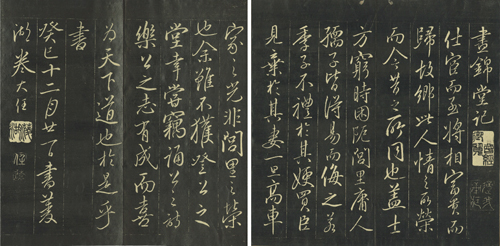 晝錦堂記
仕宦而至將相富貴而
歸故鄉此人情之所榮
而今昔之所同也蓋士
方窮時困阨閭里庸人
孺子皆得易而侮之若
季子不禮於其嫂買臣
見棄於其妻一旦高車
家之光非閭里之榮
也余雖不獲登公之
堂幸嘗竊誦公之詩
樂公之志有成而喜
為天下道也於是乎
書
癸巳十二月廿日書菱
湖卷大任